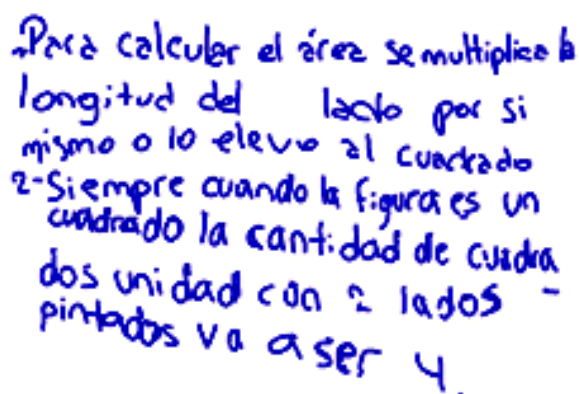 -Para calcular el área se multiplica la
longitud del lado por si
mismo o lo elevo al cuadrado
2-Siempre cuando la figura es un
cuadrado la cantidad de cuadra
dos unidad con 2 lados -
pintados va a ser 4.